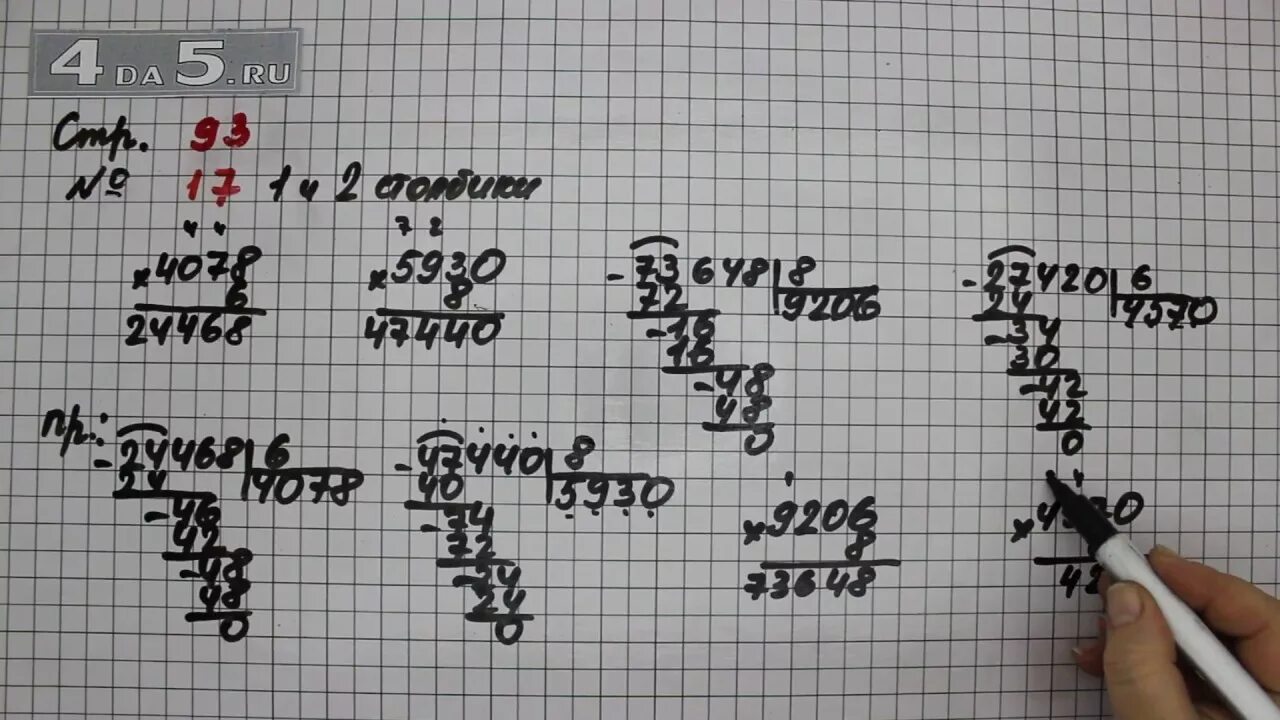 4DA5.RU
Стр. 93
№ 17 1 и 2 столбики
4 4
×4078
6
24468
7 2
×5930
8
47440
-73648 8
72 9206
-16
16
-48
48
0
-27420 6
24 4570
-34
30
-42
42
0
пр.:
-24468 6
24 4078
-46
42
-48
48
0
-47440 8
40 5930
-74
72
-24
24
0
×9206
8
73648
4
×
42